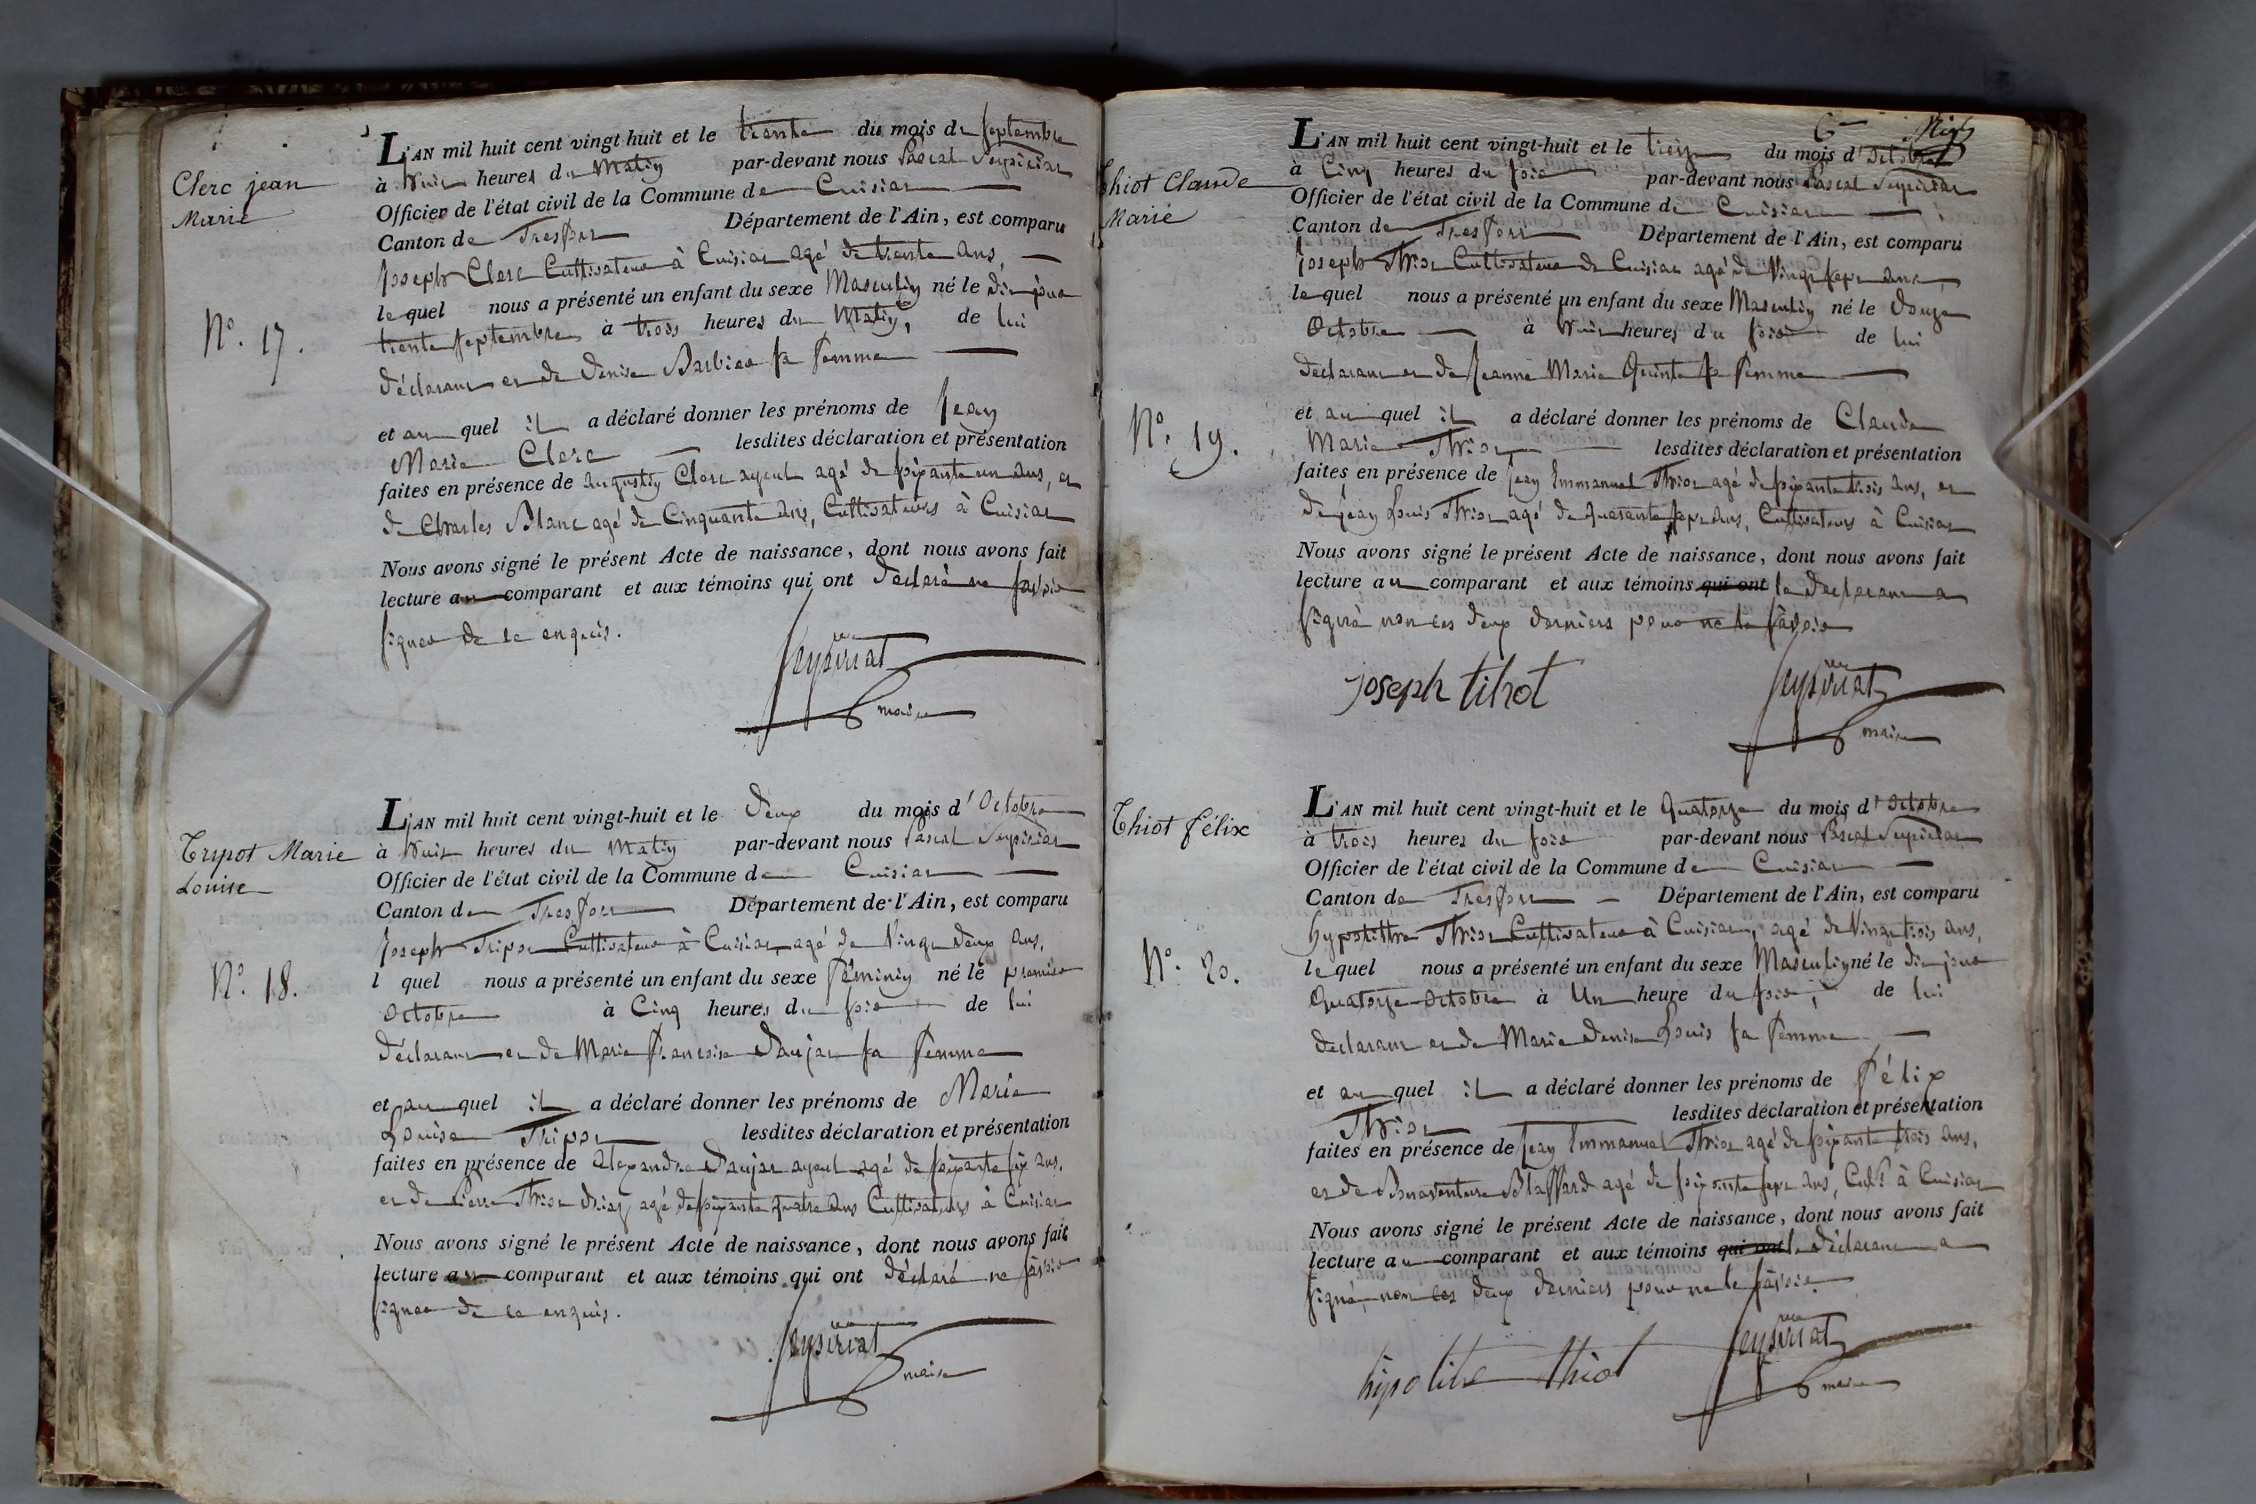 Clerc jean
Marie
N.o 17.
L'AN mil huit cent vingt-huit et le trente du mois de Septembre
à huit heures du Matin par-devant nous Pascal Seysiriat
Officier de l'état civil de la Commune de Cuisiat
Canton de Treffort Département de l'Ain, est comparu
Joseph Clerc Cultivateur à Cuisiat agé de trente ans,
le quel nous a présenté un enfant du sexe Masculin né le dit jour
trente Septembre à trois heures du Matin, de lui
déclarant et de Denise Barbier sa femme
et au quel il a déclaré donner les prénoms de Jean
Marie Clerc lesdites déclaration et présentation
faites en présence de augustin Clerc ayeul agé de soixante un ans, et
de Charles Blanc agé de Cinquante ans, Cultivateurs à Cuisiat
Nous avons signé le présent Acte de naissance, dont nous avons fait
lecture au comparant et aux témoins qui ont déclaré ne savoir
signer de ce enquis.
Seysiriat
maire
Tripot Marie
Louise
N.o 18.
L'AN mil huit cent vingt-huit et le deux du mois d'Octobre
à huit heures du Matin par-devant nous Pascal Seysiriat
Officier de l'état civil de la Commune de Cuisiat
Canton de Treffort Département de l'Ain, est comparu
Joseph Tripot Cultivateur à Cuisiat, agé de Vingt deux ans,
l quel nous a présenté un enfant du sexe féminin né le premier
Octobre à Cinq heures du soir de lui
déclarant et de Marie françoise Daujat sa femme
et au quel il a déclaré donner les prénoms de Marie
Louise Tripot lesdites déclaration et présentation
faites en présence de alexandre Daujat ayeul agé de soixante six ans,
et de Pierre Thiot agé de soixante quatre ans Cultivateurs à Cuisiat
Nous avons signé le présent Acte de naissance, dont nous avons fait
lecture au comparant et aux témoins qui ont déclaré ne savoir
signer de ce enquis.
Seysiriat
maire
Thiot Claude
Marie
N.o 19.
L'AN mil huit cent vingt-huit et le treize du mois d'Octobre
à Cinq heures du soir par-devant nous Pascal Seysiriat
Officier de l'état civil de la Commune de Cuisiat
Canton de Treffort Département de l'Ain, est comparu
Joseph Thiot Cultivateur de Cuisiat agé de Vingt sept ans,
le quel nous a présenté un enfant du sexe Masculin né le douze
Octobre à huit heures du soir de lui
déclarant et de Jeanne Marie Quinte sa femme
et au quel il a déclaré donner les prénoms de Claude
Marie Thiot lesdites déclaration et présentation
faites en présence de Jean Emmanuel Thiot agé de soixante trois ans, et
de jean Louis Thiot agé de quarante sept ans, Cultivateurs à Cuisiat
Nous avons signé le présent Acte de naissance, dont nous avons fait
lecture au comparant et aux témoins qui ont le déclarant a
signé non les deux derniers pour ne le savoir
joseph tihot
Seysiriat
maire
Thiot félix
N.o 20.
L'AN mil huit cent vingt-huit et le Quatorze du mois d'Octobre
à trois heures du soir par-devant nous Pascal Seysiriat
Officier de l'état civil de la Commune de Cuisiat
Canton de Treffort Département de l'Ain, est comparu
hypolithe Thiot Cultivateur à Cuisiat, agé de Vingt trois ans,
le quel nous a présenté un enfant du sexe Masculin né le dit jour
Quatorze Octobre à Un heure du soir, de lui
déclarant et de Marie Denise Louis sa femme
et au quel il a déclaré donner les prénoms de félix
Thiot lesdites déclaration et présentation
faites en présence de Jean Emmanuel Thiot agé de soixante trois ans,
et de Bonaventure Blaffard agé de soixante sept ans, Cult.rs à Cuisiat
Nous avons signé le présent Acte de naissance, dont nous avons fait
lecture au comparant et aux témoins qui ont le déclarant a
signé, non les deux derniers pour ne le savoir.
hipolite thiot
Seysiriat
maire